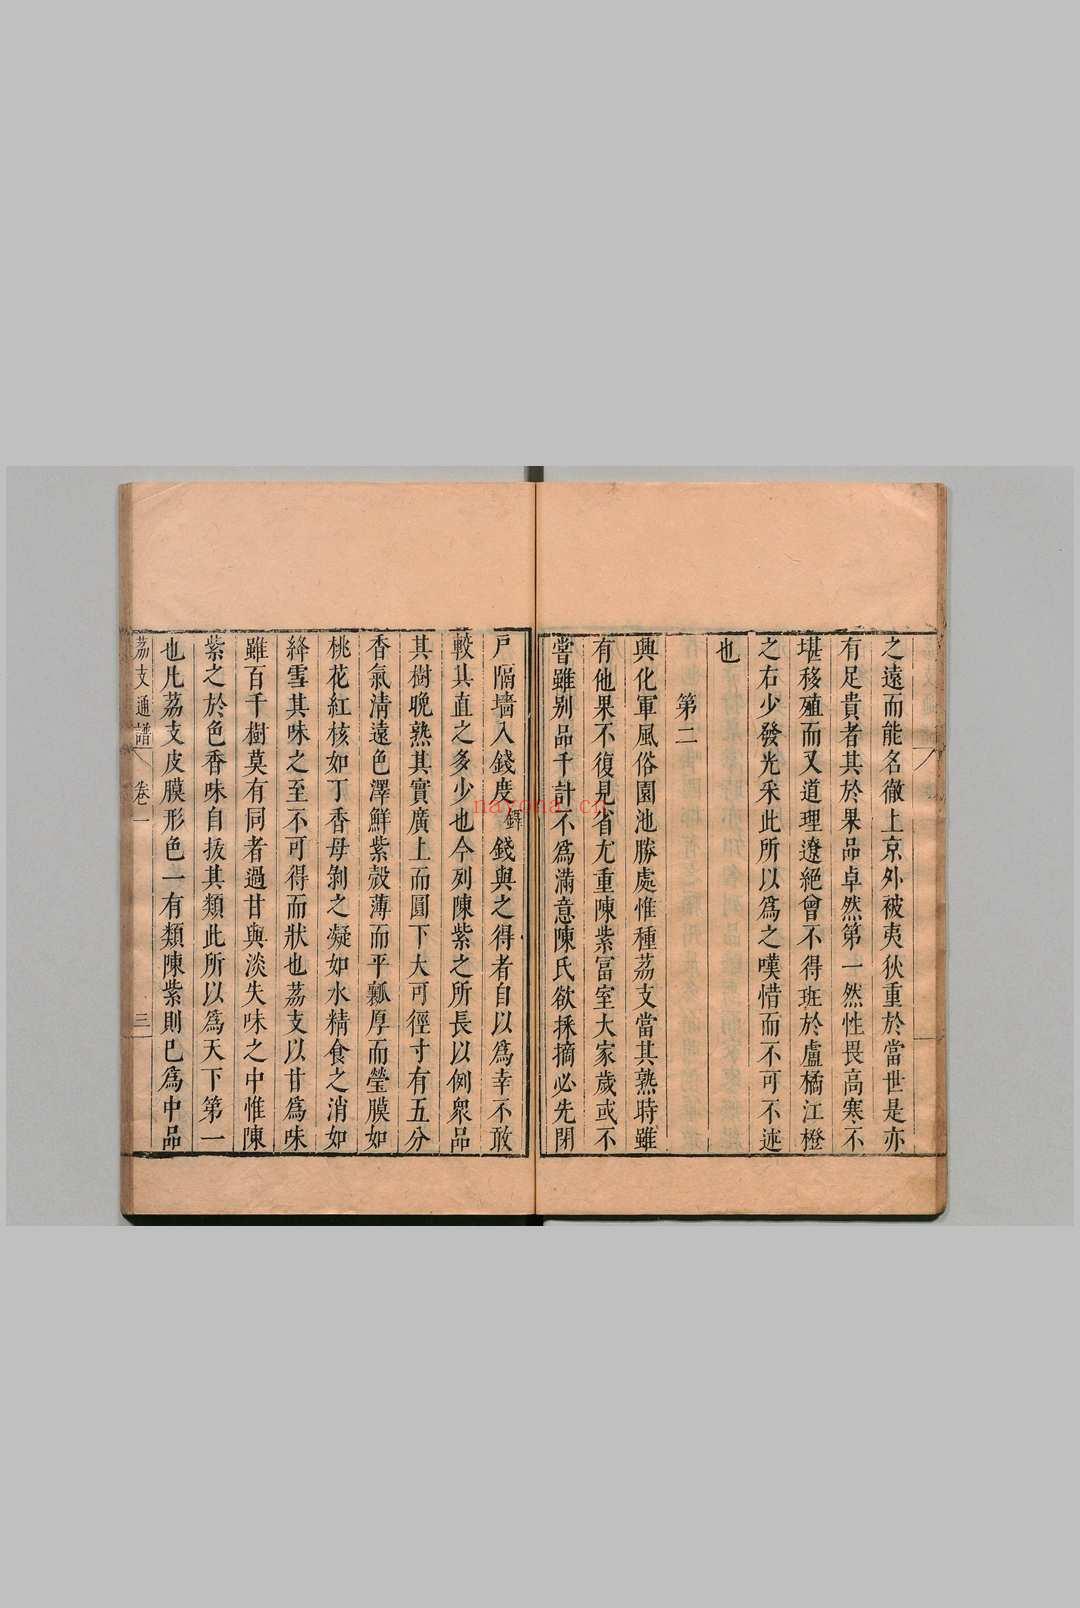 之遠而能名徹上京外被夷狄重於當世是亦
有足貴者其於果品卓然第一然性畏高寒不
堪移殖而又道理遼絕曾不得班於盧橘江橙
之右少發光采此所以為之嘆惜而不可不述
也
第二
興化軍風俗園池勝處惟種荔支當其熟時雖
有他果不復見省尤重陳紫冨室大家歲或不
嘗雖别品千計不為滿意陳氏欲採摘必先閉
戸隔墻入錢度錢與之得者自以為幸不敢
較其直之多少也今列陳紫之所長以例衆品
其樹晚熟其實廣上而圓下大可徑寸有五分
香氣清遠色澤鮮紫殼薄而平瓤厚而瑩膜如
桃花紅核如丁香母剝之凝如水精食之消如
絳雪其味之至不可得而狀也荔支以甘為味
雖百千樹莫有同者過甘與淡失味之中惟陳
紫之於色香味自拔其類此所以為天下第一
也凡荔支皮膜形色一有類陳紫則已為中品
荔支通譜 卷一 三
nayona.cn